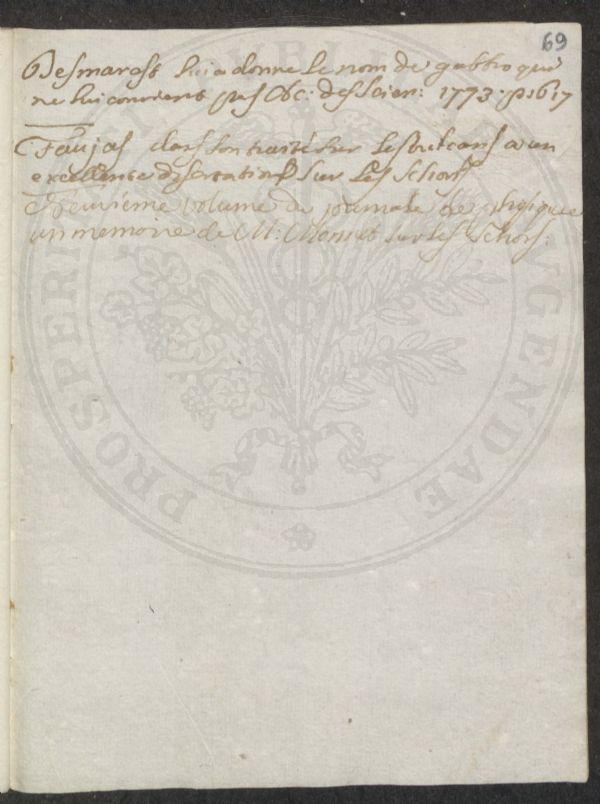 69
Desmarest lui a donne le nom de gabbro qui
ne lui convient pas Ac: des scien: 1773. p. 617
Faujas dans son traité sur les vulcans a un
excellente disertation sur les schorls
deuxieme volume du journale de phisique
un memoire de M: Monnet sur les schorls:
PROSPERI AUGENDAE